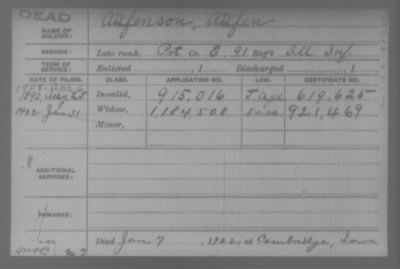 DEAD
NAME OF SOLDIER:
SERVICE: Late rank, Pvt Co. E, 91 Reg't Ill Inf.
TERM OF SERVICE: Enlisted , 1 Discharged , 1
DATE OF FILING. CLASS. APPLICATION NO. LAW. CERTIFICATE NO.
1890, Aug Invalid, 915,016 619,625
1922 Jan 31 Widow, 1,184,508 921,469
Minor,
ADDITIONAL SERVICES:
REMARKS:
Died Jan 7 , 1922, at Cambridge, Iowa